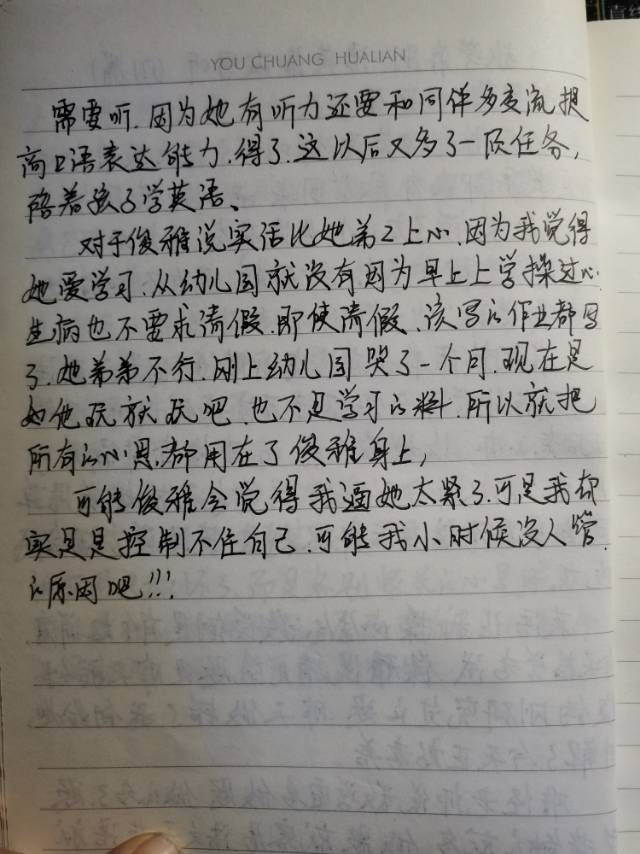 YOU CHUANG HUALIAN
需要听.因为她有听力还要和同伴多交流提
高口语表达能力.得了.这以后又多了一项任务,
陪着孩子学英语、
对于俊雅说实话比她弟弟上心.因为我觉得
她爱学习.从幼儿园就没有因为早上上学操过心.
生病也不要求请假.即使请假.该写的作业都写
了.她弟弟不行.刚上幼儿园哭了一个月.现在是
如他玩就玩吧.也不是学习的料.所以就把
所有的心思都用在了俊雅身上,
可能俊雅会觉得我逼她太紧了.可是我却
实是是控制不住自己.可能我小时候没人管.
的原因吧!!!